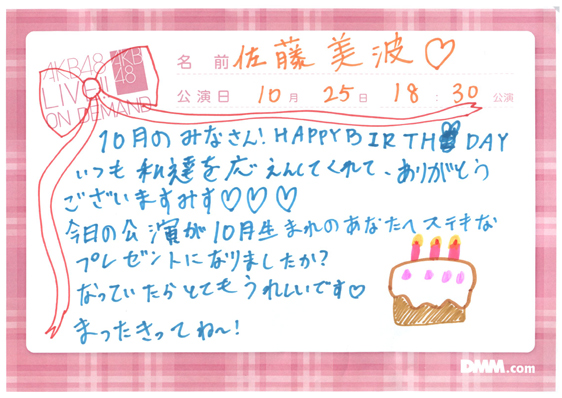 AKB48
LIVE!!
ON DEMAND
AKB
48
名前 佐藤美波♡
公演日 10月 25日 18:30 公演
10月のみなさん!HAPPY BIRTH DAY
いつも私達を応えんしてくれて、ありがとう
ございますみす♡♡♡
今日の公演が10月生まれのあなたへステキな
プレゼントになりましたか?
なっていたらとてもうれしいです♡
まったきってね〜!
DMM.com